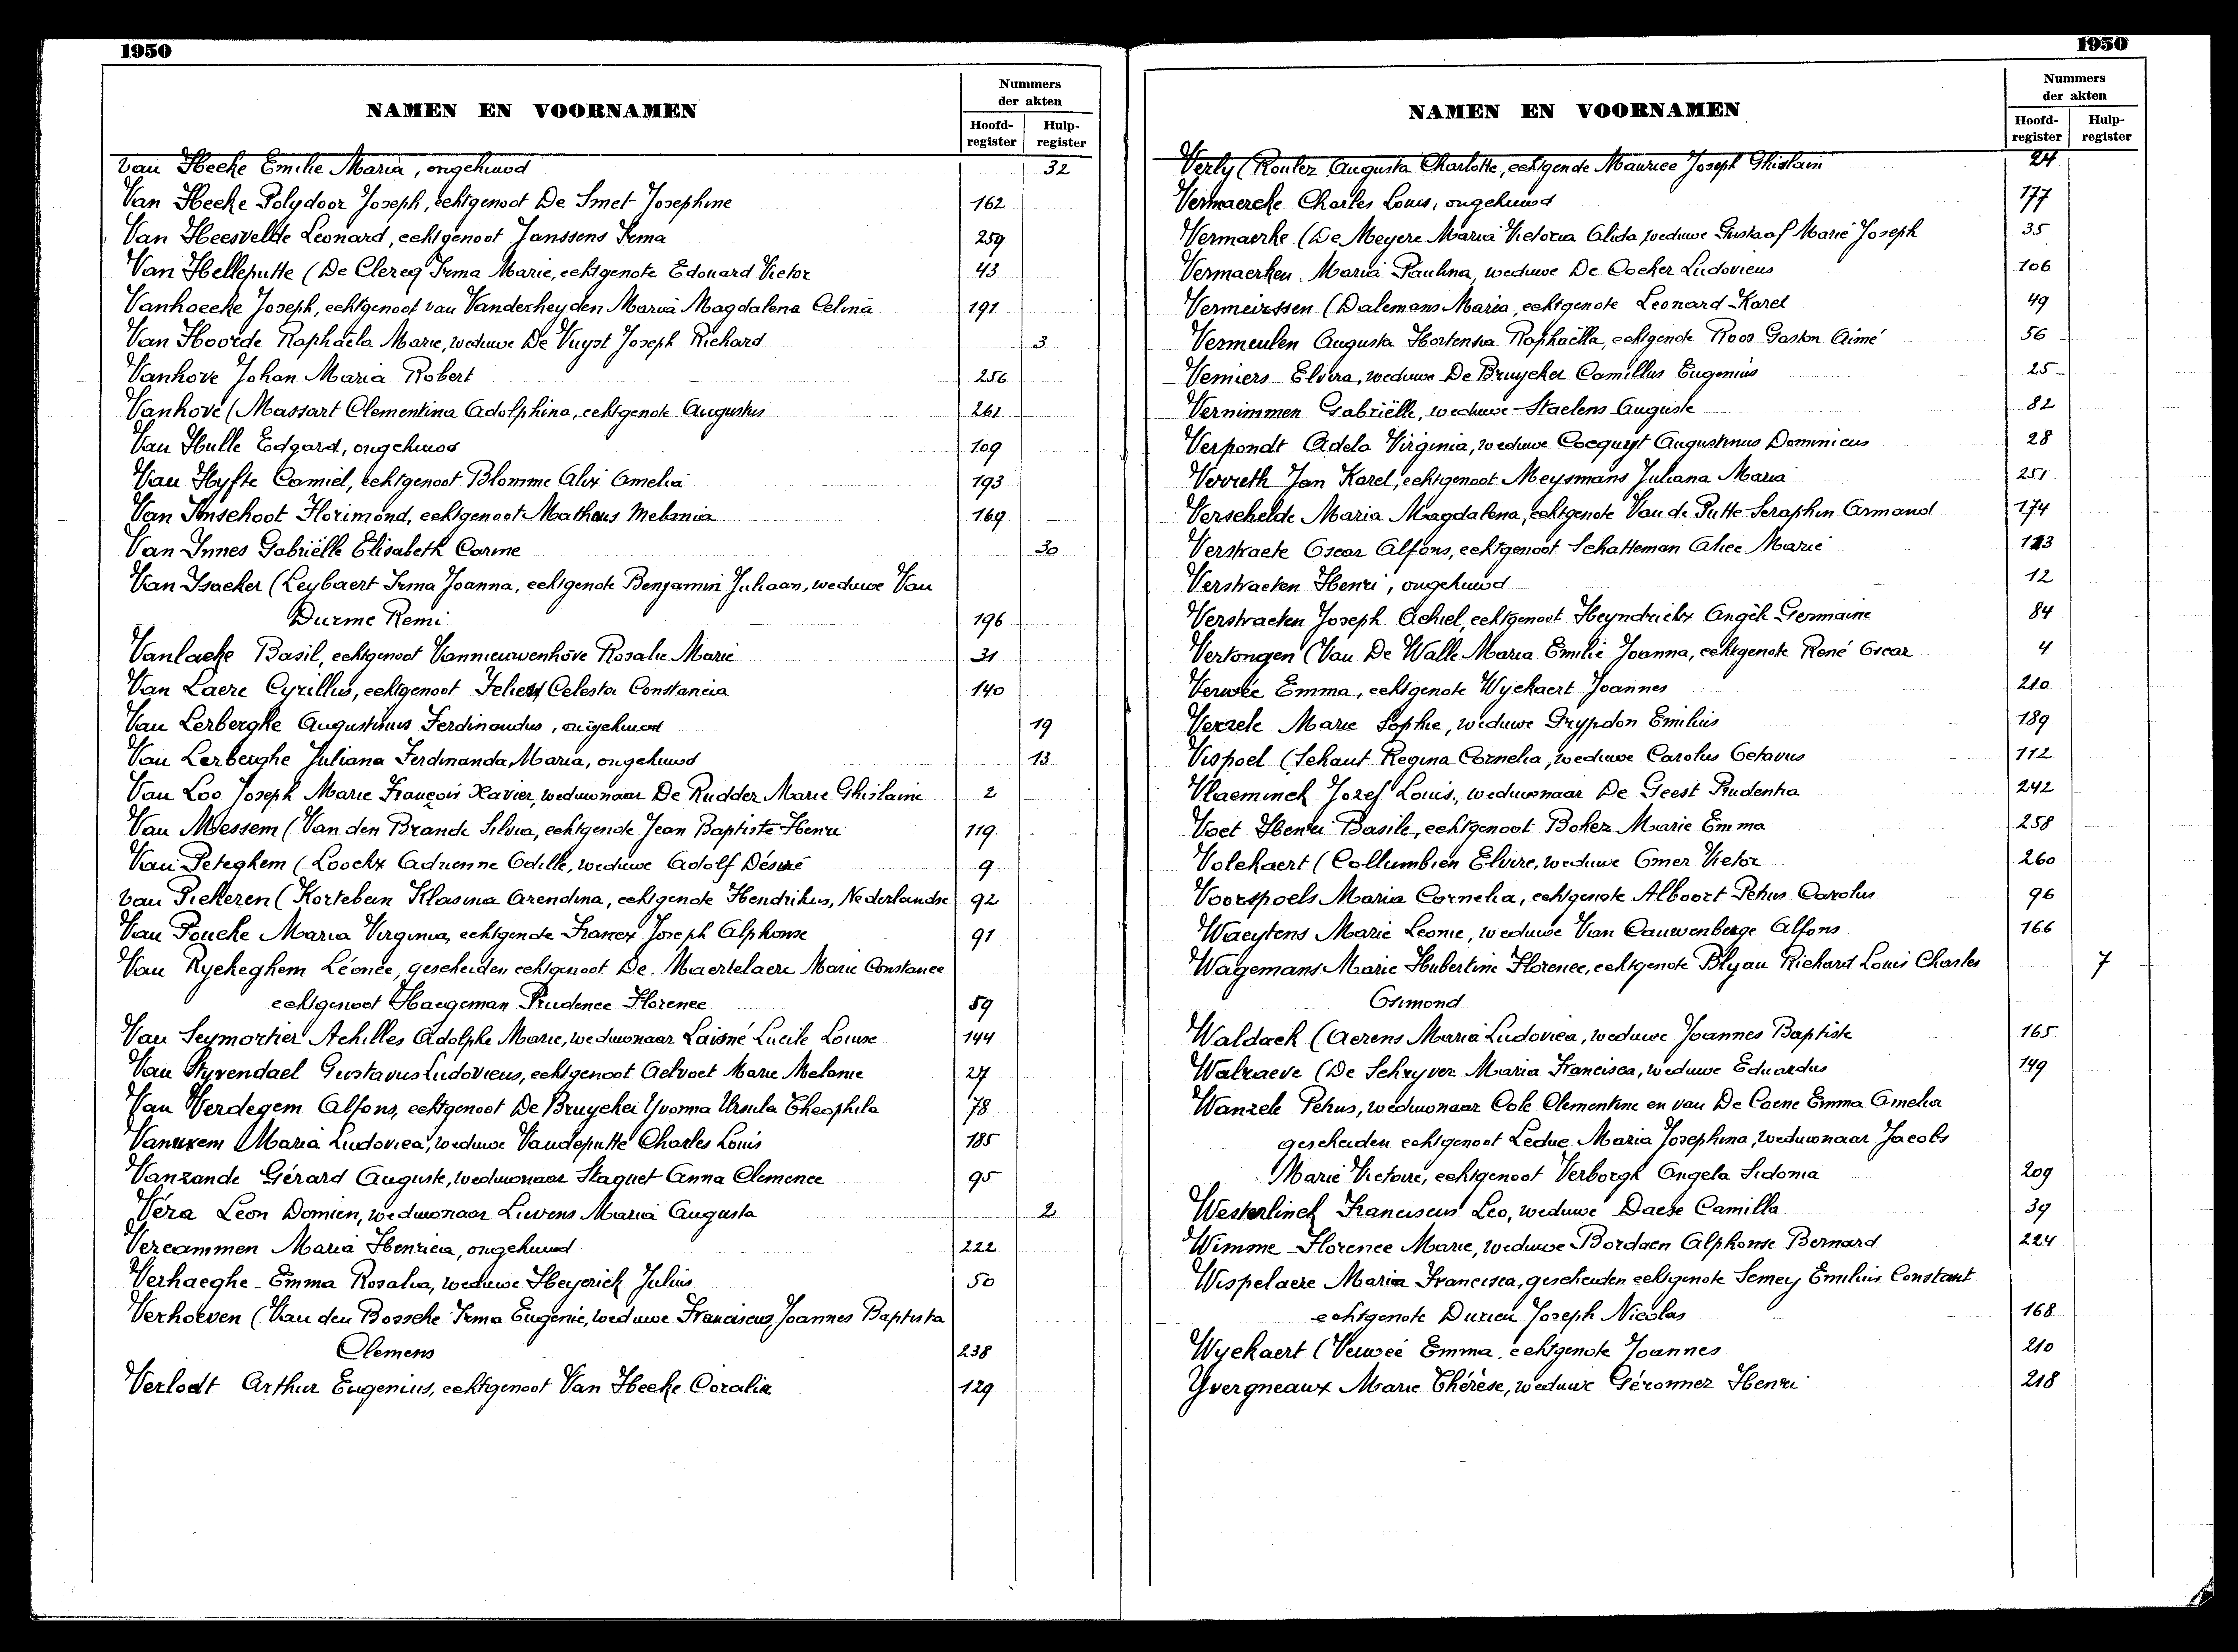 1950
NAMEN EN VOORNAMEN
Nummers
der akten
Hoofd-
register
Hulp-
register
van Hecke Emilie Maria, ongehuwd 32
Van Hecke Polydoor Joseph, echtgenoot De Smet Josephine 162
Van Heesvelde Leonard, echtgenoot Janssens Irma 259
Van Helleputte (De Clercq Irma Marie, echtgenote Edouard Victor 43
Vanhoecke Joseph, echtgenoot van Vanderheyden Maria Magdalena Celina 191
Van Hoorde Raphaëla Marie, weduwe De Vuyst Joseph Richard 3
Vanhove Johan Maria Robert 256
Vanhove (Massart Clementina Adolphina, echtgenote Augustus 261
Van Hulle Edgard, ongehuwd 109
Van Hyfte Camiel, echtgenoot Blomme Alix Amelia 193
Van Imschoot Florimond, echtgenoot Matheus Melania 169
Van Innes Gabriëlle Elisabeth Carine 30
Van Isacker (Leybaert Irma Joanna, echtgenote Benjamin Juliaan, weduwe Van
Durme Remi 196
Vanlacke Basil, echtgenoot Vannieuwenhove Rosalie Marie 31
Van Laere Cyrillus, echtgenoot Celesta Constancia 140
Van Lerberghe Augustinus Ferdinandus, ongehuwd 19
Van Lerberghe Juliana Ferdinanda Maria, ongehuwd 13
Van Loo Joseph Marie François Xavier, weduwnaar De Rudder Marie Ghislaine 2
Van Messem (Van den Brande Silvia, echtgenote Jean Baptiste Henri 119
Van Peteghem (Loockx Adrienne Odille, weduwe Adolf Désiré 9
van Piekeren (Kortebein Klasina Arendina, echtgenote Hendrikus, Nederlandse 92
Van Poucke Maria Virginia, echtgenote Franex Joseph Alphonse 91
Van Ryckeghem Léonce, gescheiden echtgenoot De Maertelaere Marie Constance
echtgenoot Haegeman Prudence Florence 59
Van Seymortier Achilles Adolphe Marie, weduwnaar Laisné Lucile Louise 144
Van Styvendael Gustavus Ludovicus, echtgenoot Aelvoet Marie Melanie 27
Van Verdegem Alfons, echtgenoot De Bruycker Yvonna Ursula Theophila 78
Vanuxem Maria Ludovica, weduwe Vandeputte Charles Louis 185
Vanzande Gérard Auguste, weduwnaar Staquet Anna Clemence 95
Véra Leon Domien, weduwnaar Lievens Maria Augusta 2
Vercammen Maria Henrica, ongehuwd 222
Verhaeghe Emma Rosalia, weduwe Heyerick Julius 50
Verhoeven (Van den Bossche Irma Eugenie, weduwe Franciscus Joannes Baptista
Clemens 238
Verlodt Arthur Eugenius, echtgenoot Van Hecke Coralia 129
1950
NAMEN EN VOORNAMEN
Nummers
der akten
Hoofd-
register
Hulp-
register
Verly (Roulez Augusta Charlotte, echtgenote Maurice Joseph Ghislain 24
Vermaercke Charles Louis, ongehuwd 177
Vermaerke (De Meyere Maria Victoria Alida, weduwe Gustaaf Marie Joseph 35
Vermaerken Maria Paulina, weduwe De Cocker Ludovicus 106
Vermeirssen (Dalemans Maria, echtgenote Leonard Karel 49
Vermeulen Augusta Hortensia Raphaëlla, echtgenote Roos Gaston Aimé 56
Verniers Elvira, weduwe De Bruycker Camillus Eugenius 25
Vernimmen Gabriëlle, weduwe Staelens Auguste 82
Verpondt Adela Virginia, weduwe Cocquyt Augustinus Dominicus 28
Verreth Jan Karel, echtgenoot Meysmans Juliana Maria 251
Verschelde Maria Magdalena, echtgenote Van de Putte Seraphin Armand 174
Verstraete Oscar Alfons, echtgenoot Schatteman Alice Marie 123
Verstraeten Henri, ongehuwd 12
Verstraeten Joseph Achiel, echtgenoot Heyndrickx Angèle Germaine 84
Vertongen (Van De Walle Maria Emilie Joanna, echtgenote René Oscar 4
Verwée Emma, echtgenote Wyckaert Joannes 210
Verzele Marie Sophie, weduwe Grypdon Emilius 189
Vispoel (Schaut Regina Cornelia, weduwe Carolus Octavus 112
Vlaeminck Jozef Louis, weduwnaar De Geest Prudentia 242
Voet Henri Basile, echtgenoot Bokez Marie Emma 258
Volckaert (Collumbien Elvire, weduwe Omer Victor 260
Voorspoels Maria Cornelia, echtgenote Alboort Petrus Carolus 96
Waeytens Marie Leonie, weduwe Van Cauwenberge Alfons 166
Wagemans Marie Hubertine Florence, echtgenote Blyau Richard Louis Charles 7
Osmond
Waldack (Aerens Maria Ludovica, weduwe Joannes Baptiste 165
Walraeve (De Schryver Maria Francisca, weduwe Eduardus 149
Wanzele Petrus, weduwnaar Cole Clementine en van De Coene Emma Amelia
gescheiden echtgenoot Leduc Maria Josephina, weduwnaar Jacobs
Marie Victoire, echtgenoot Verborgh Angela Sidonia 209
Westerlinck Franciscus Leo, weduwe Daese Camilla 39
Wimme Florence Marie, weduwe Bordaen Alphonse Bernard 224
Wispelaere Maria Francisca, gescheiden echtgenote Semey Emilius Constant
echtgenote Durieu Joseph Nicolas 168
Wyckaert (Verwée Emma, echtgenote Joannes 210
Yvergneaux Marie Thérèse, weduwe Géronnez Henri 218